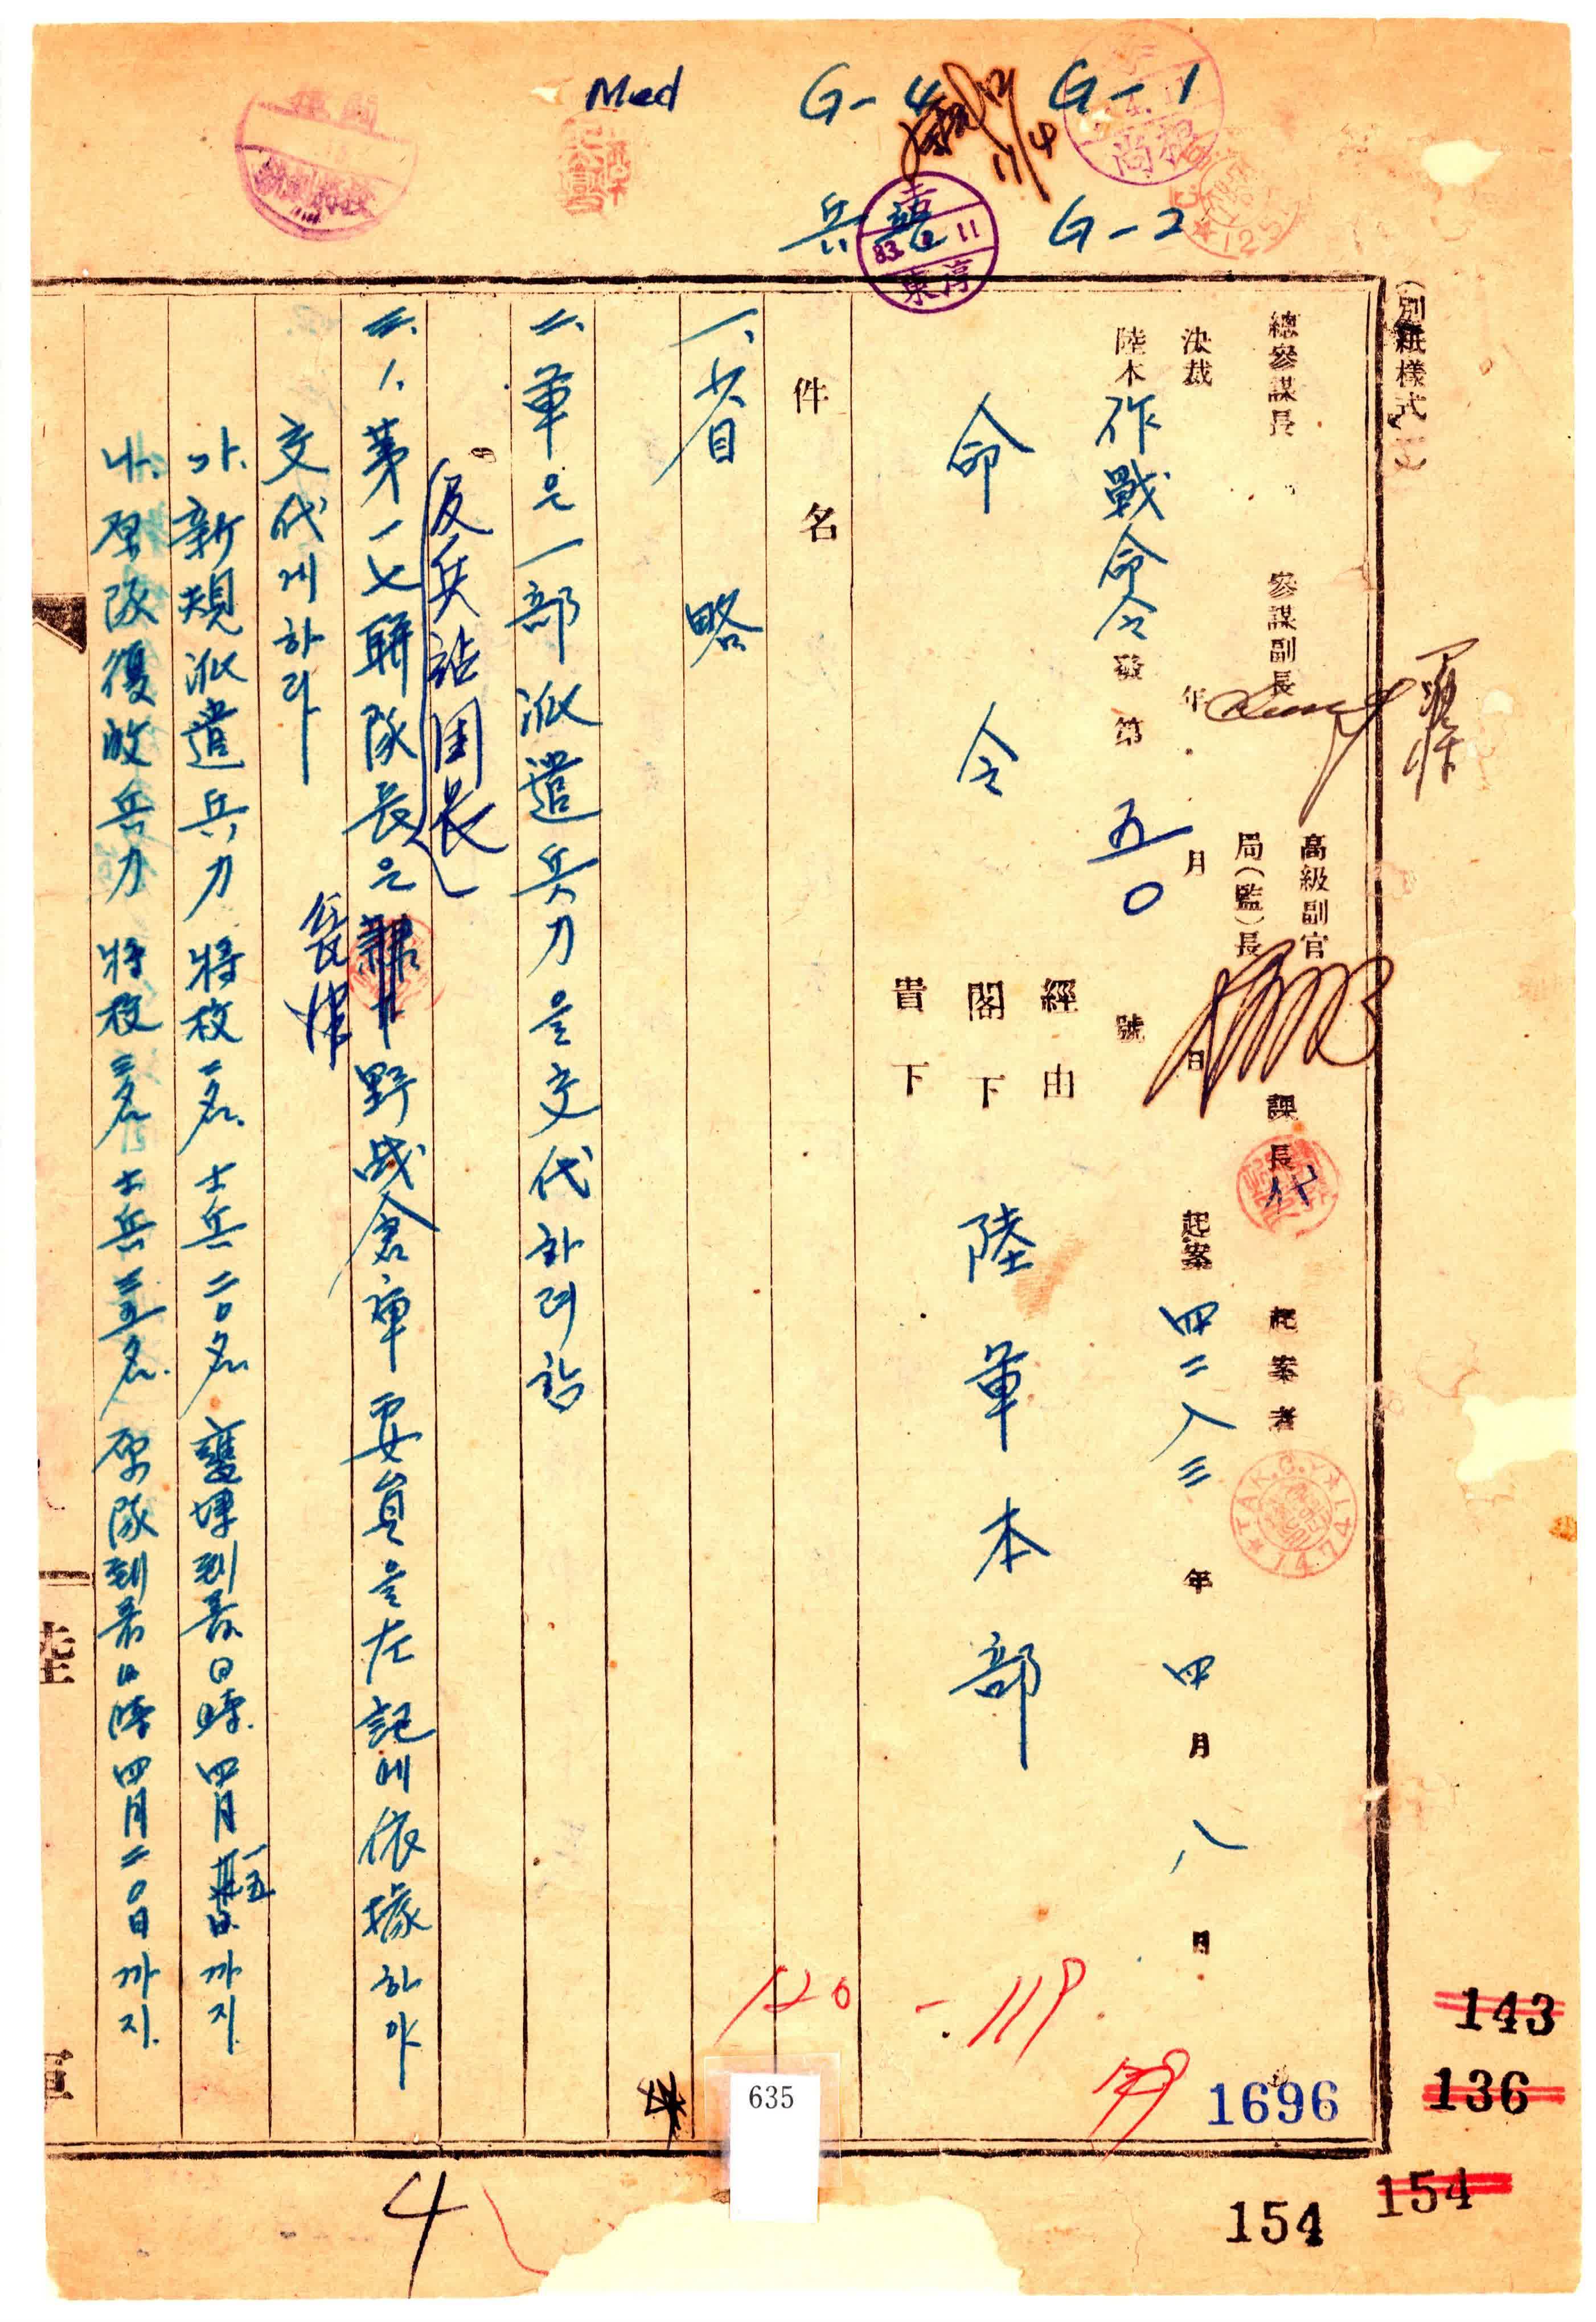 Med
G-4
G-1
11/4
兵
G-2
83. 4. 11
(別紙樣式
總參謀長
參謀副長
高級副官
局(監)長
課長代
起案者
決裁
年
月
日
起案 四二八三年 四月 八日
陸本 作戰命令 發第 五〇 號
經由
命令
閣下
陸軍本部
貴下
件名
一、省略
二、軍은 一部派遣兵力을 交代하려 함
及兵站団長
三、1、第一七聯隊長은 野战倉庫要員을 左記에 依據하야
甕津
交代게하라
가. 新規派遣兵力 將校 一名 士兵 二〇名 甕津到着日時 四月 一五日까지
나. 原隊復皈兵力 將校 三名 士兵 三五名 原隊到着日時 四月二〇日까지.
陸
軍
120
-119
635
1696
143
136
154
154
4